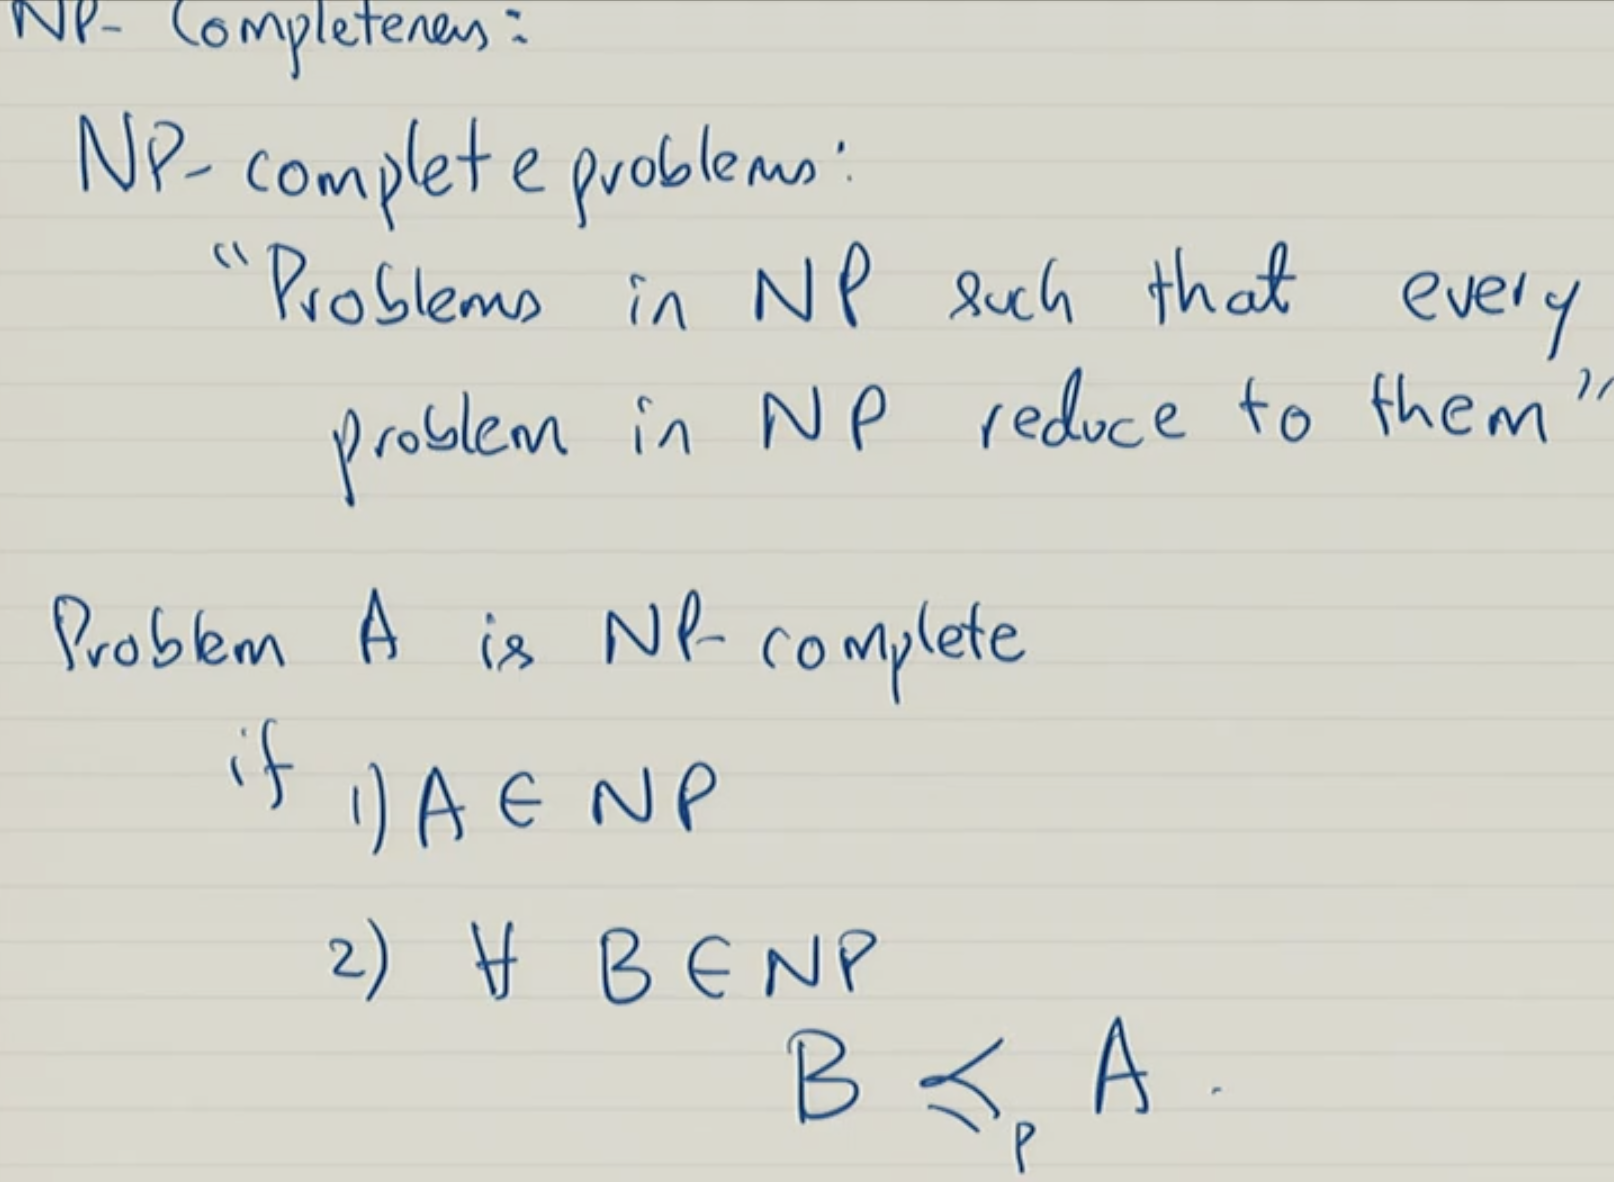 NP- Completeness:
NP- complete problems:
"Problems in NP such that every
problem in NP reduce to them"
Problem A is NP- complete
if 1) A ∈ NP
2) ∀ B ∈ NP
B ≼p A.